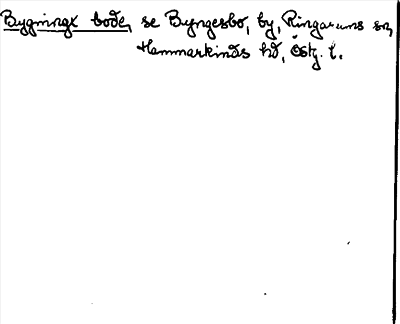 Bygningx bode, se Byngesbo, by, Ringarums sn,
Hammarkinds hd, Östg. l.